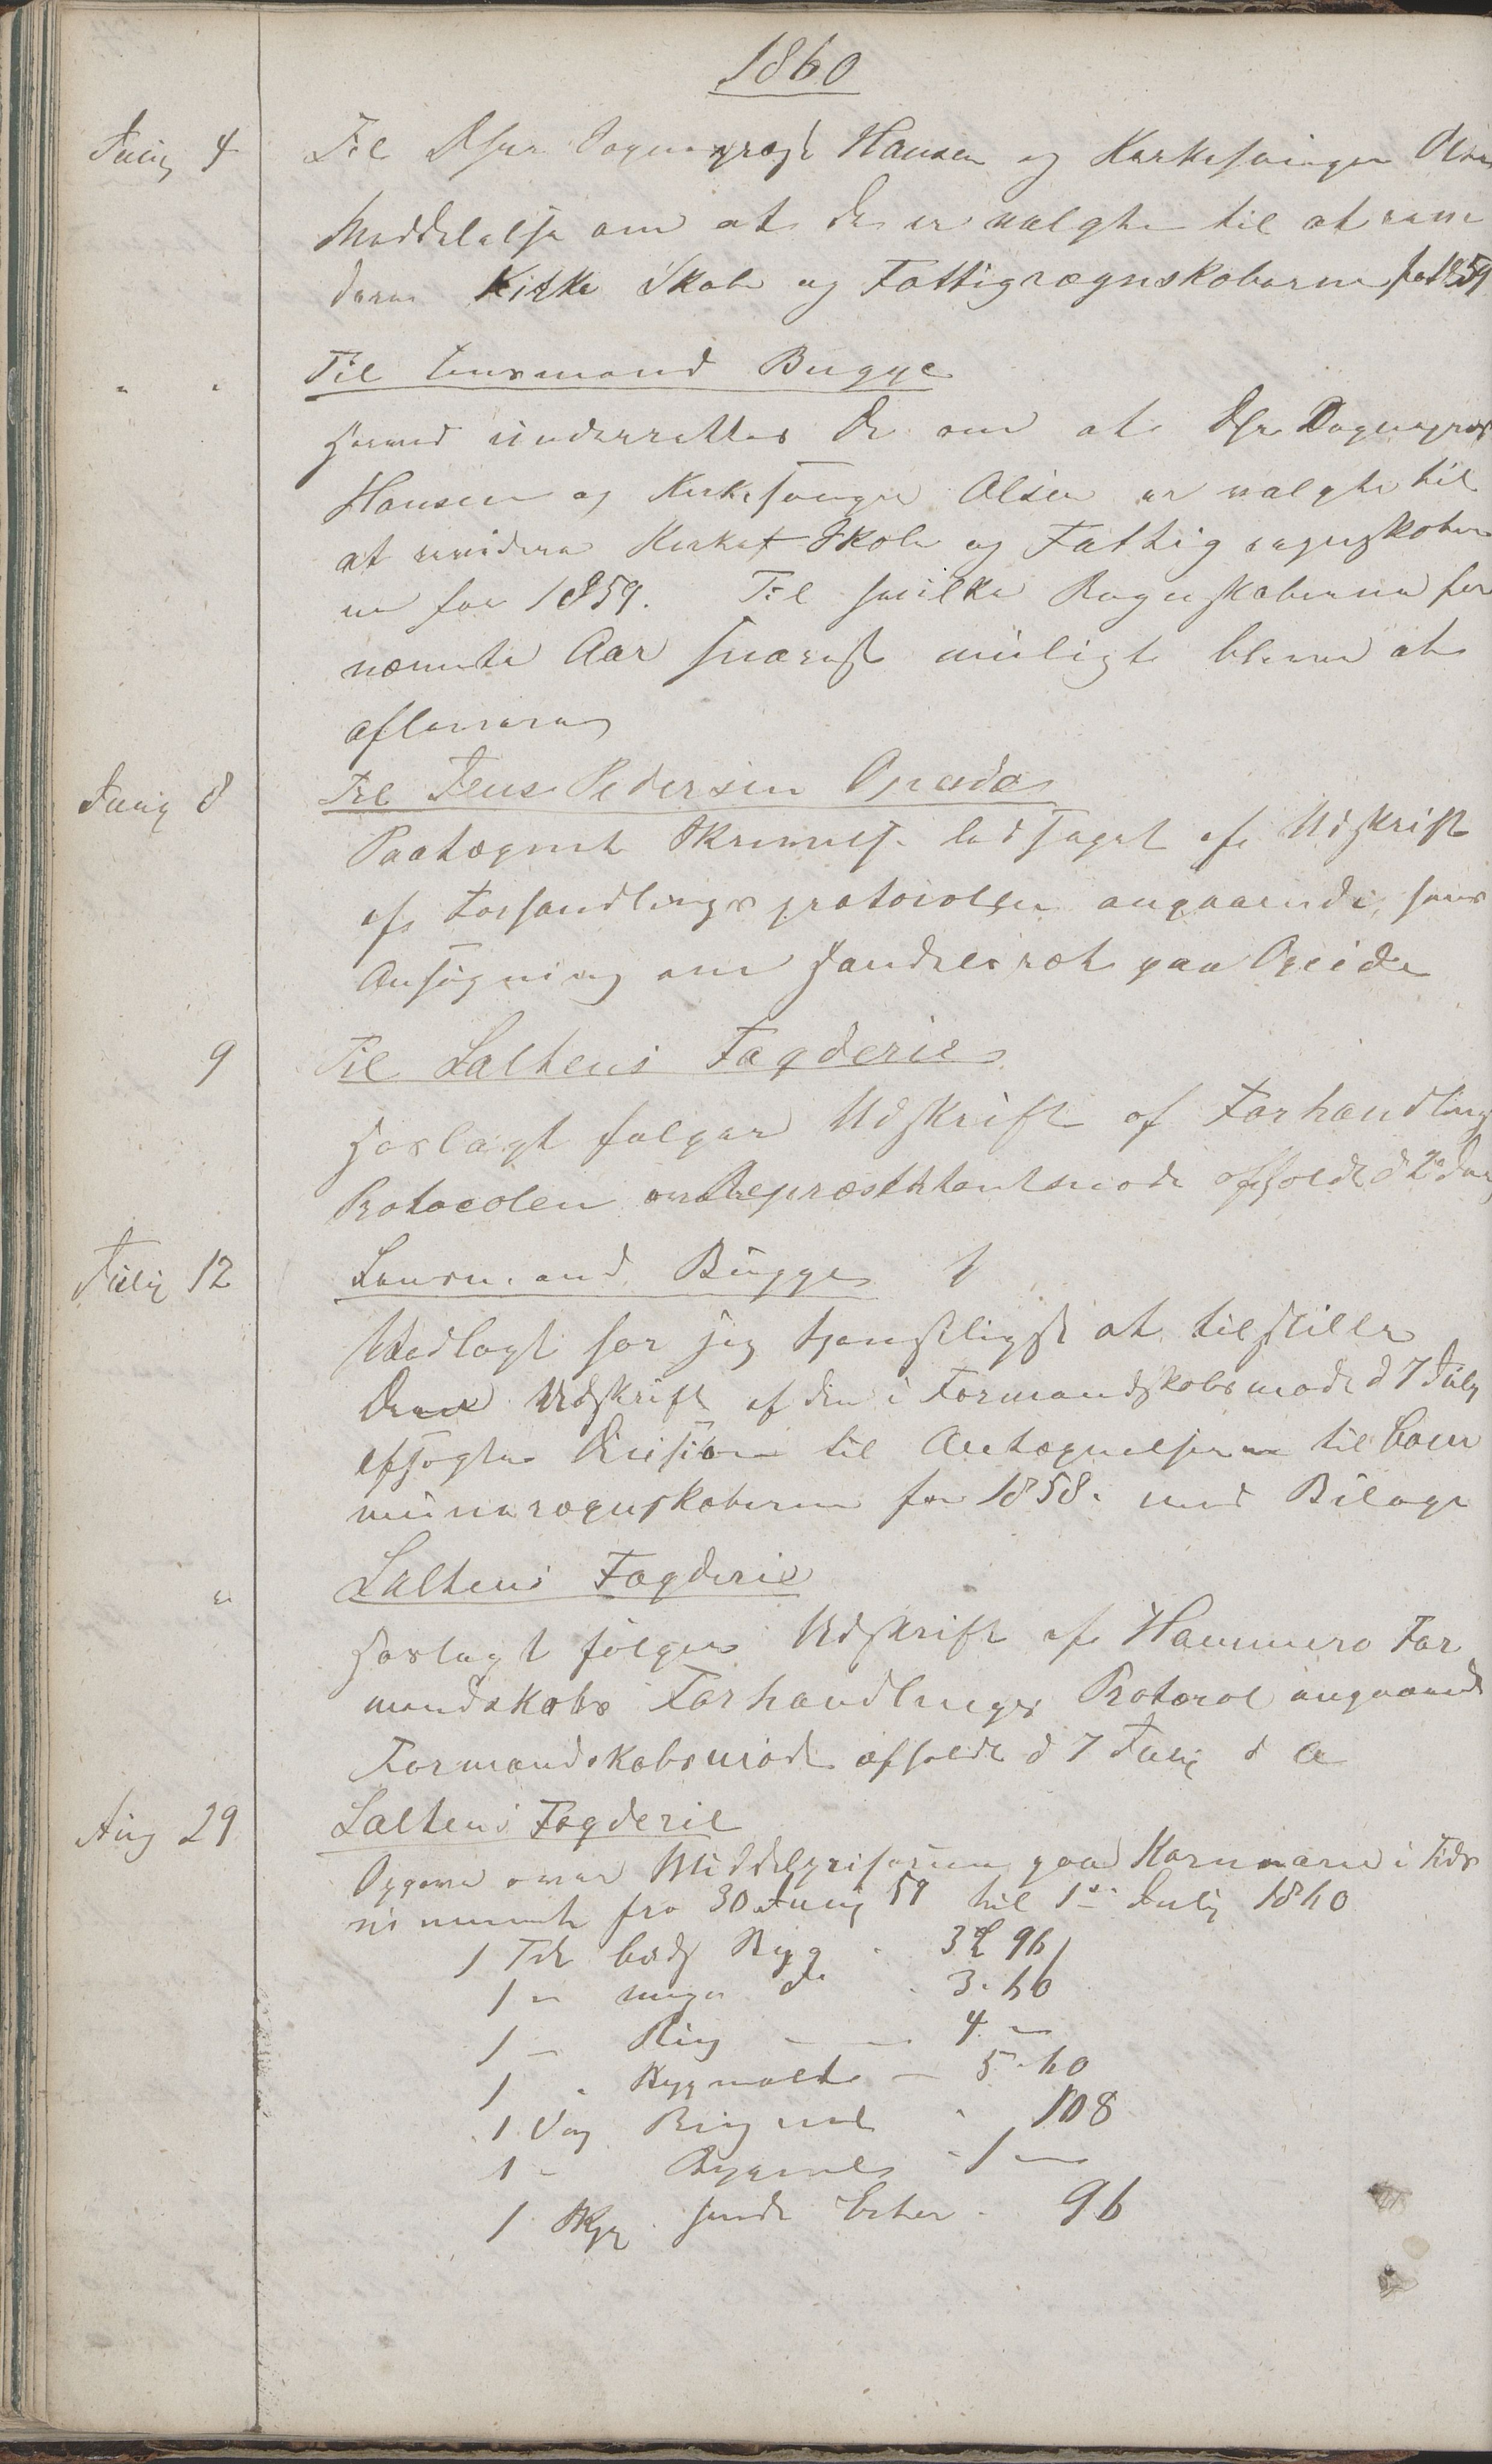 1860
Juny 4 Til Dhrr Sogneprest Hansen og Kirkesanger Olsen
Meddelelse om at de er valgte til at revi
derer Kirke Skole og Fattigregnskaberne for 1859
" " Til Lensmand Bugge
Herved underrettes De om at Dhr Sogneprest
Hansen og Kirkesanger Olsen er valgte til
at revidere Kirke Skole og Fattig regnskaber
ne for 1859. Til hvilke Regnskaberne for
nævnte Aar snarest muligt blive at
aflevere
Juny 8 Til Jens Pedersen Opeide
Paategnet Skrivelse ledsaget af Udskrift
af Forhandlingsprotocollen angaaende hans
Ansøgning om Handelsret paa Opeide
9 Til Saltens Fogderie
Hoslagt følger Udskrift af Forhandlings
Protocolen over Repræsentantmøde afholdt d 2de Juny
July 12 Lensmand Bugge
Vedlagt har jeg tjenstligst at tilstille
Dem Udskrift af den i Formandskabsmøde d 7 July
afsagte Decision til Antegnelserne til Com
muneregnskaberne for 1858. med Bilage
" Saltens Fogderie
Hoslagt følger Udskrift af Hammerø For
mandskabs Forhandlings Protocol angaaende
Formandskabsmøde afholdt d 7 July d A
Aug 29 Saltens Fogderie
Opgave over Middelpriserne paa Kornvarer i Tids
rummet fra 30 Juny 59 til 1ste July 1860
1 Tde beds Byg - 3 96
1 " ringe do . 3. 60
1 - Rug - - 4 -
1 . Bygmalt - 5. 60
1 Vog Rugmel " 108
1 - Bygmel - 1 -
1 Skp. sunde Erter - 96